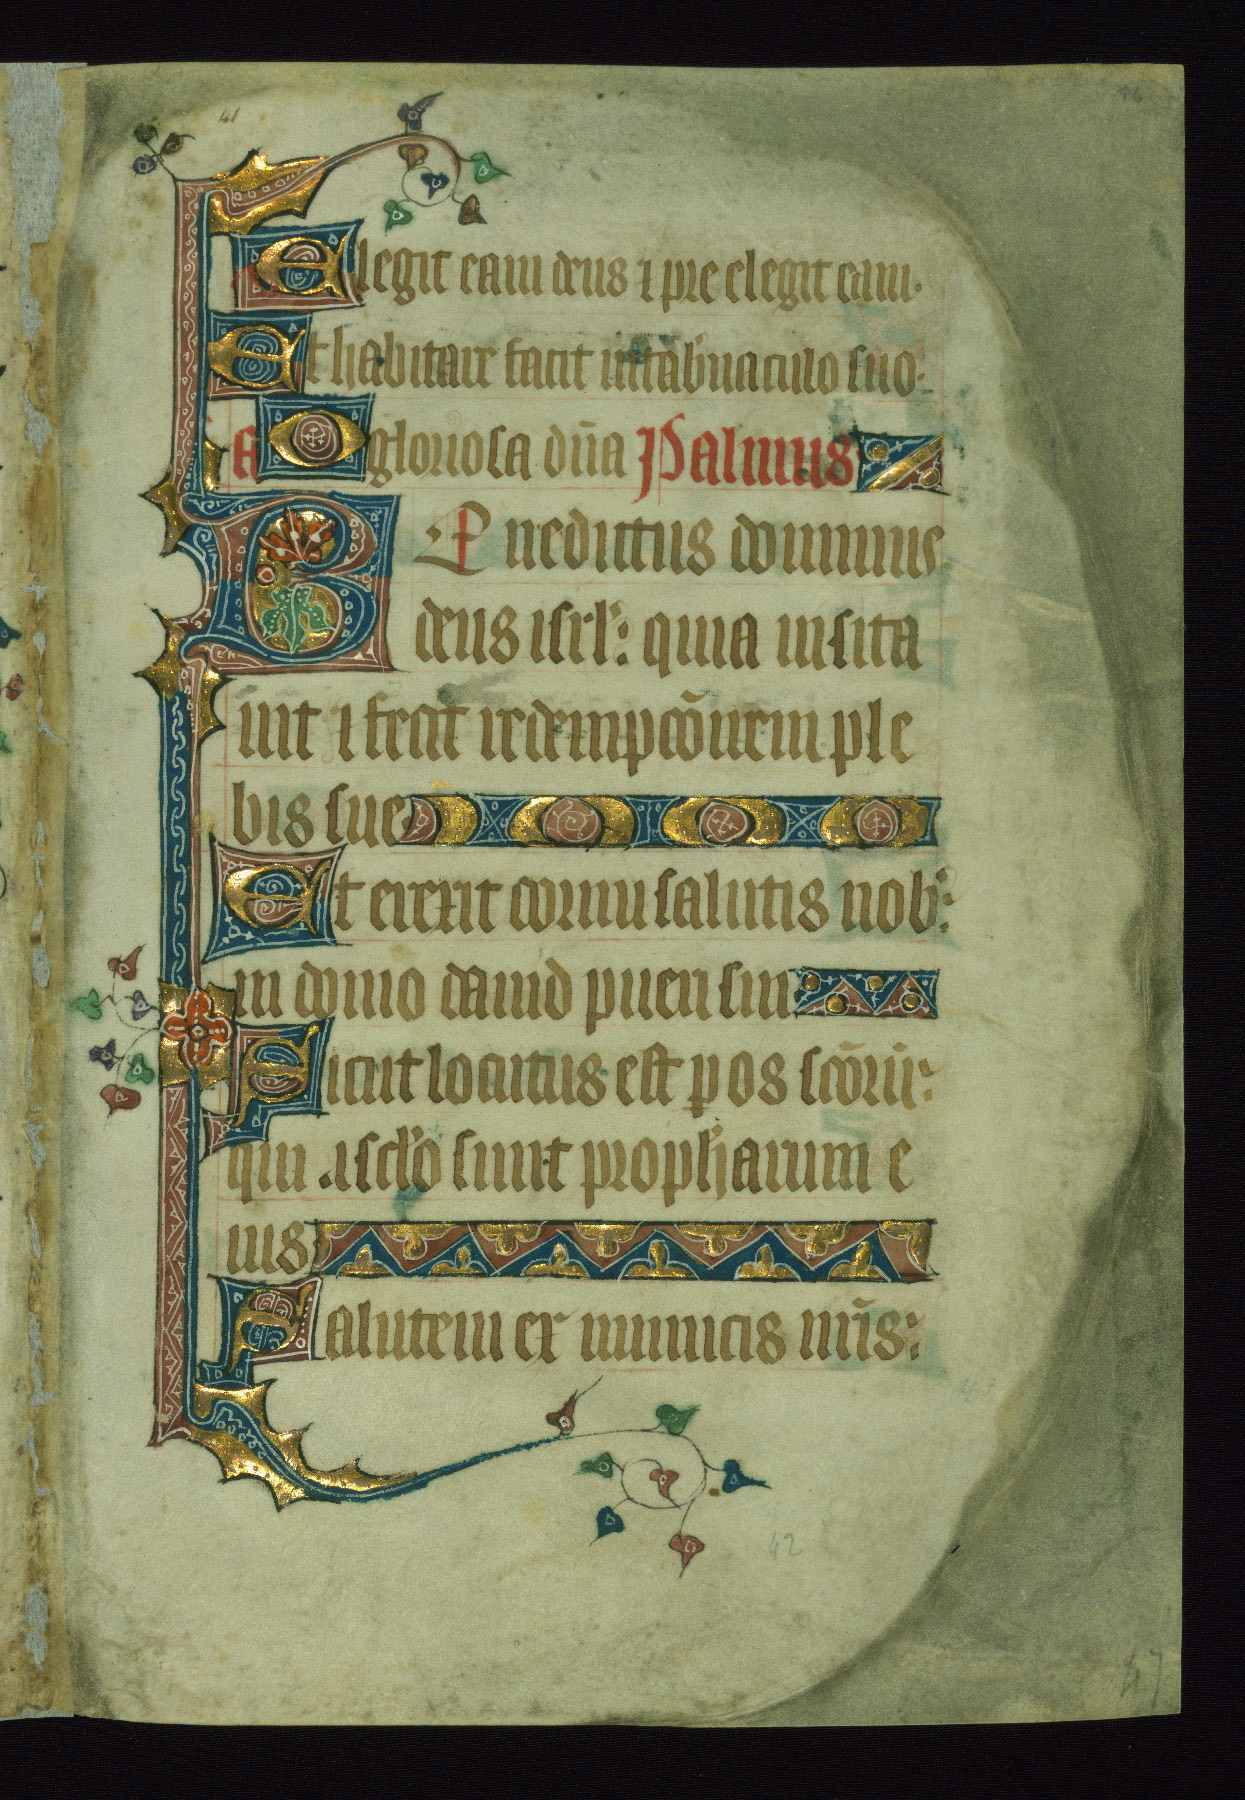 41
Elegit eam deus ⁊ pre elegit eam.
Et habitare facit in tab'naculo suo.
A O gloriosa dn̄a Psalmus
Benedictus dominus
deus isrl': quia uisita
uit ⁊ fecit redempcōnem ple
bis sue
Et erexit cornu salutis nob':
in domo dauid pueri sui
Sicut locutus est p os scōrū:
qui a sclo sunt prophetarum e
ius
Salutem ex inimicis nr̄is:
42
47